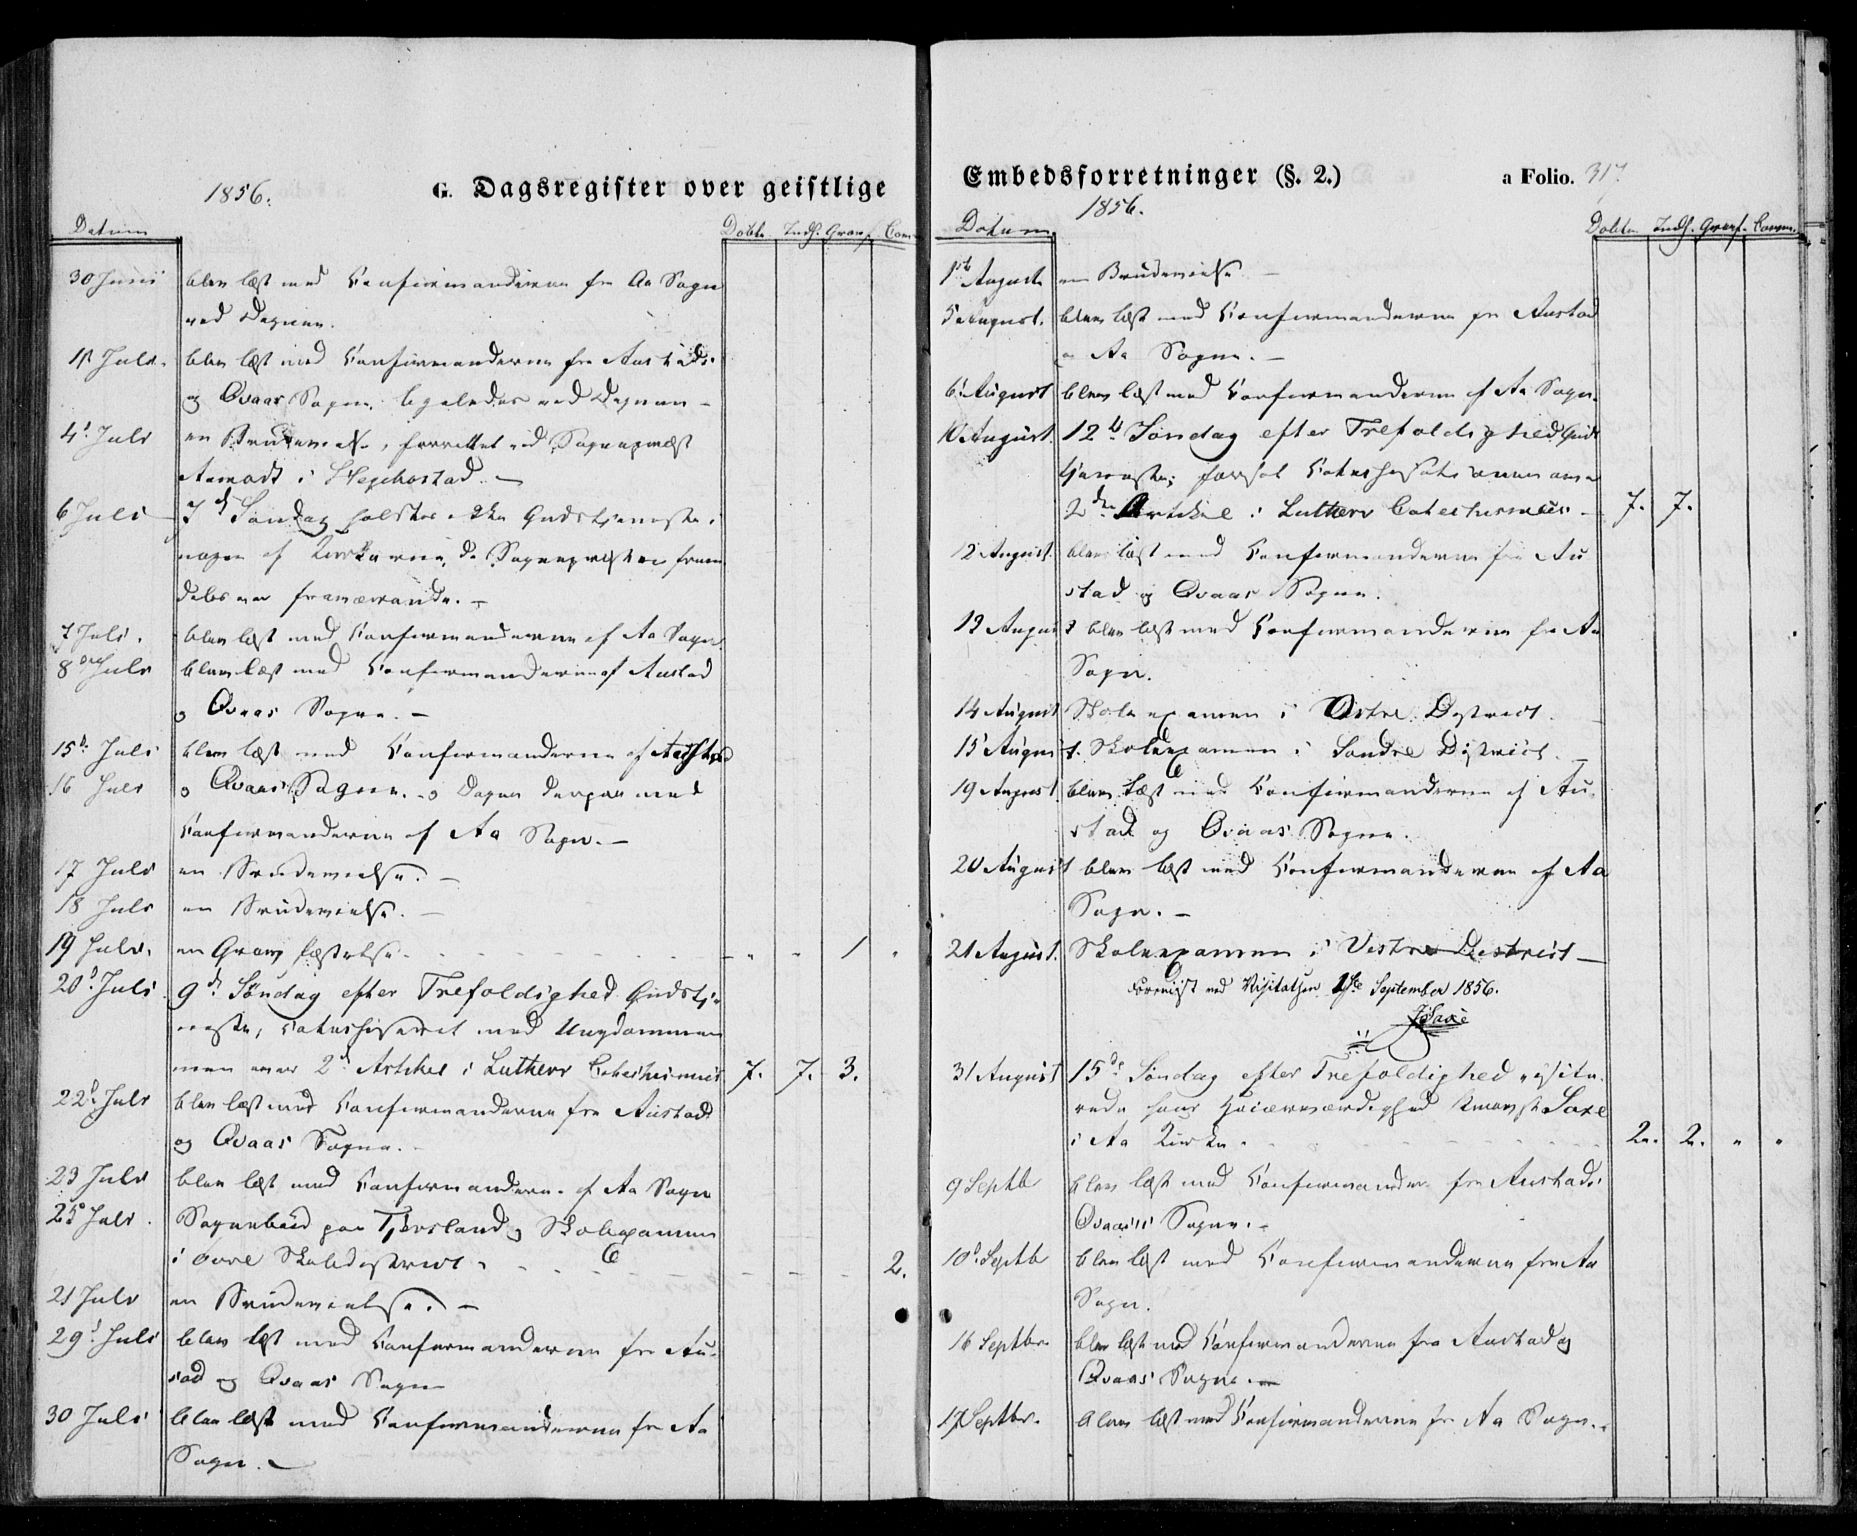 1856.
G. Dagsregister over geistlige
Datum Dobte. Indl. Gravf. Com
30 Juni blev læst med Confirmanderne fra Aa Sogn
ved Degnen.
1st Juli. blev læst med Confirmanderne fra Austads
og Qvaas Sogne, ligeledes ved Degnen –
4d Juli en Brudevielse, forrettet ved Sognepræst
Aamodt i Hegebostad. –
6 Juli 7d Søndag holdtes ikke Gudstjeneste i
nogen af Kirkerne, da Sognepræsten frem
deles var fraværende. –
7 Juli. blev læst med Confirmanderne af Aa Sogn
8de Juli blev læst med Confirmanderne af Austad
og Qvaas Sogne. –
15d Juli blev læst med Confirmanderne af Austad
16 Juli og Qvaas Sogne. og Dagen derpaa med
Confirmanderne af Aa Sogn. –
17 Juli en Brudevielse. –
18 Juli en Brudevielse. –
19 Juli. en Gravfæstelse. 1
20d Juli 9d Søndag efter Trefoldighed Gudstje-
neste, Catechiseret med Ungdommen
men over 2d Artikel i Luthers Catechismus 7. 7. 3.
22d Juli blev læst med Confirmanderne fra Austad
og Qvaas Sogne. –
23 Juli blev læst med Confirmanderne af Aa Sogn
25d Juli. Sognebud paa Tjersland og Skolexamen
i øvre Skoledistrict 2.
21 Juli en Brudevielse. –
29d Juli blev læst med Confirmanderne fra Au-
stad og Qvaas Sogn
30 Juli blev læst med Confirmanderne fra Aa
Sogn. –
Embedsforretninger (§. 2.) a Folio. 317.
1856.
Datum Dobte. Indl. Gravf. Comm.
1ste August en Brudevielse –
5 August. blev læst med Confirmanderne fra Austad
og Aa Sogne. –
6d August blev læst med Confirmanderne af Aa Sogn.
10 August. 12te Søndag efter Trefoldighed Guds
tjeneste; Catechisation over
2den Artikel i Luthers Catechismus – 7. 7.
12 August. blev læst med Confirmanderne fra Au
stad og Qvaas Sogne.
13 August blev læst med Confirmanderne fra Aa
Sogn.
14 August Skolexamen i Østre District. –
15 August. Skolexamen i Søndre District. –
19 August. blev læst med Confirmanderne af Au-
stad og Qvaas Sogne.
20 August blev læst med Confirmanderne af Aa
Sogn. –
21 August. Skolexamen i Vestre District –
Foreviist ved Visitatsen 1ste September 1856.
JSaxe
31 August 15de Søndag efter Trefoldighed visite-
rede hans Høiærværdighed Provst Saxe
i Aa Kirke. 2. 2. " "
9 Septb blev læst med Confirmander fra Austads
Qvaas's Sogne. –
10d Septb blev læst med Confirmanderne fra Aa
Sogn.
16 Septbr blev læst med Confirmanderne fra Austad og
Qvaas Sogne. –
17 Septbr. blev læst med Confirmanderne fra Aa Sogn. –